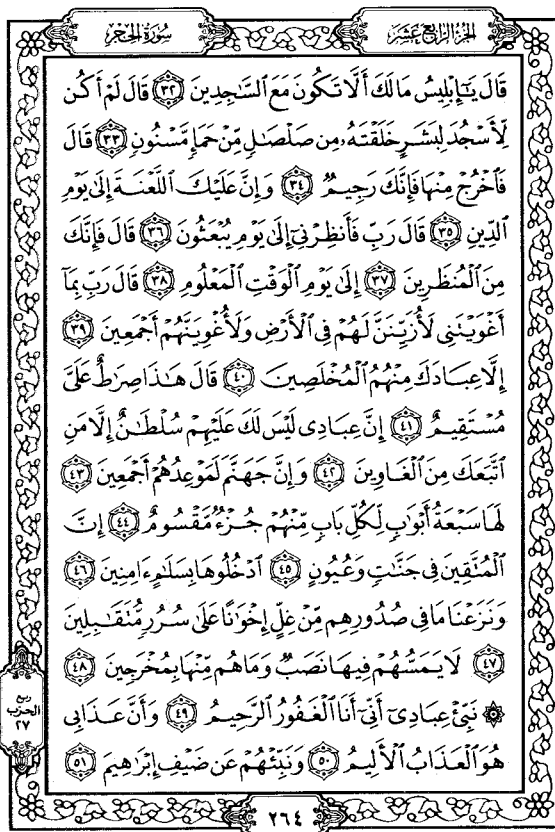 سُورَةُ الحِجْرِ
الجُزْءُ الرَّابِعُ عَشَرَ
قَالَ يَـٰٓإِبۡلِيسُ مَا لَكَ أَلَّا تَكُونَ مَعَ ٱلسَّـٰجِدِينَ ٣٢ قَالَ لَمۡ أَكُن
لِّأَسۡجُدَ لِبَشَرٍ خَلَقۡتَهُۥ مِن صَلۡصَـٰلٖ مِّنۡ حَمَإٖ مَّسۡنُونٖ ٣٣ قَالَ
فَٱخۡرُجۡ مِنۡهَا فَإِنَّكَ رَجِيمٞ ٣٤ وَإِنَّ عَلَيۡكَ ٱللَّعۡنَةَ إِلَىٰ يَوۡمِ
ٱلدِّينِ ٣٥ قَالَ رَبِّ فَأَنظِرۡنِيٓ إِلَىٰ يَوۡمِ يُبۡعَثُونَ ٣٦ قَالَ فَإِنَّكَ
مِنَ ٱلۡمُنظَرِينَ ٣٧ إِلَىٰ يَوۡمِ ٱلۡوَقۡتِ ٱلۡمَعۡلُومِ ٣٨ قَالَ رَبِّ بِمَآ
أَغۡوَيۡتَنِي لَأُزَيِّنَنَّ لَهُمۡ فِي ٱلۡأَرۡضِ وَلَأُغۡوِيَنَّهُمۡ أَجۡمَعِينَ ٣٩
إِلَّا عِبَادَكَ مِنۡهُمُ ٱلۡمُخۡلَصِينَ ٤٠ قَالَ هَـٰذَا صِرَٰطٌ عَلَيَّ
مُسۡتَقِيمٌ ٤١ إِنَّ عِبَادِي لَيۡسَ لَكَ عَلَيۡهِمۡ سُلۡطَـٰنٌ إِلَّا مَنِ
ٱتَّبَعَكَ مِنَ ٱلۡغَاوِينَ ٤٢ وَإِنَّ جَهَنَّمَ لَمَوۡعِدُهُمۡ أَجۡمَعِينَ ٤٣
لَهَا سَبۡعَةُ أَبۡوَٰبٖ لِّكُلِّ بَابٖ مِّنۡهُمۡ جُزۡءٞ مَّقۡسُومٌ ٤٤ إِنَّ
ٱلۡمُتَّقِينَ فِي جَنَّـٰتٖ وَعُيُونٍ ٤٥ ٱدۡخُلُوهَا بِسَلَـٰمٍ ءَامِنِينَ ٤٦
وَنَزَعۡنَا مَا فِي صُدُورِهِم مِّنۡ غِلٍّ إِخۡوَٰنًا عَلَىٰ سُرُرٖ مُّتَقَـٰبِلِينَ
٤٧ لَا يَمَسُّهُمۡ فِيهَا نَصَبٞ وَمَا هُم مِّنۡهَا بِمُخۡرَجِينَ ٤٨
۞ نَبِّئۡ عِبَادِيٓ أَنِّيٓ أَنَا ٱلۡغَفُورُ ٱلرَّحِيمُ ٤٩ وَأَنَّ عَذَابِي
هُوَ ٱلۡعَذَابُ ٱلۡأَلِيمُ ٥٠ وَنَبِّئۡهُمۡ عَن ضَيۡفِ إِبۡرَٰهِيمَ ٥١
ربع
الحزب
٢٧
٢٦٤